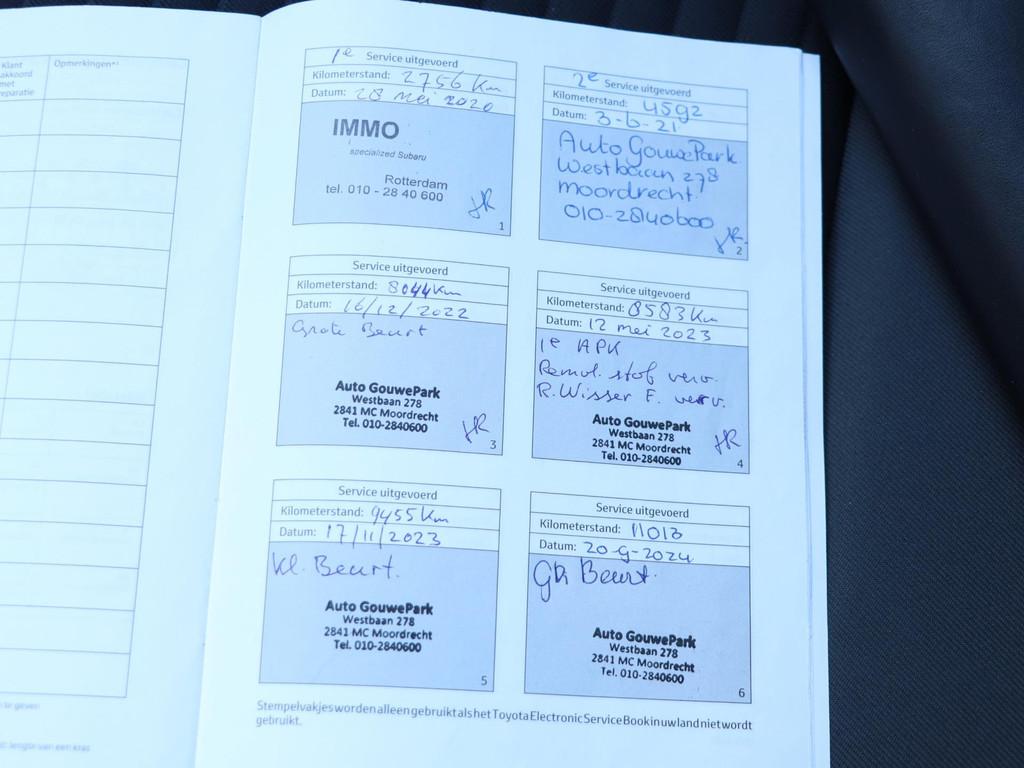 Klant
akkoord
met
reparatie
Opmerkingen*⁾
1e Service uitgevoerd
Kilometerstand: 2756 Km
Datum: 28 mei 2020
IMMO
specialized Subaru
Rotterdam
tel. 010 - 28 40 600
JR
1
2e Service uitgevoerd
Kilometerstand: 4592
Datum: 3-6-21
Auto GouwePark
Westbaan 278
moordrecht
010-2840600
JR
2
Service uitgevoerd
Kilometerstand: 8044Km
Datum: 16/12/2022
Grote Beurt
Auto GouwePark
Westbaan 278
2841 MC Moordrecht
Tel. 010-2840600
JR
3
Service uitgevoerd
Kilometerstand: 8583 Km
Datum: 12 mei 2023
1e APK
Remvl. stof verv.
R. Wisser F. verv.
Auto GouwePark
Westbaan 278
2841 MC Moordrecht
Tel. 010-2840600
JR
4
Service uitgevoerd
Kilometerstand: 9455 Km
Datum: 17/11/2023
Kl. Beurt.
Auto GouwePark
Westbaan 278
2841 MC Moordrecht
Tel. 010-2840600
5
Service uitgevoerd
Kilometerstand: 11013
Datum: 20-9-2024
GR Beurt.
Auto GouwePark
Westbaan 278
2841 MC Moordrecht
Tel. 010-2840600
6
Stempelvakjes worden alleen gebruikt als het Toyota Electronic Service Book in uw land niet wordt
gebruikt.
te geven
lengte van een kras